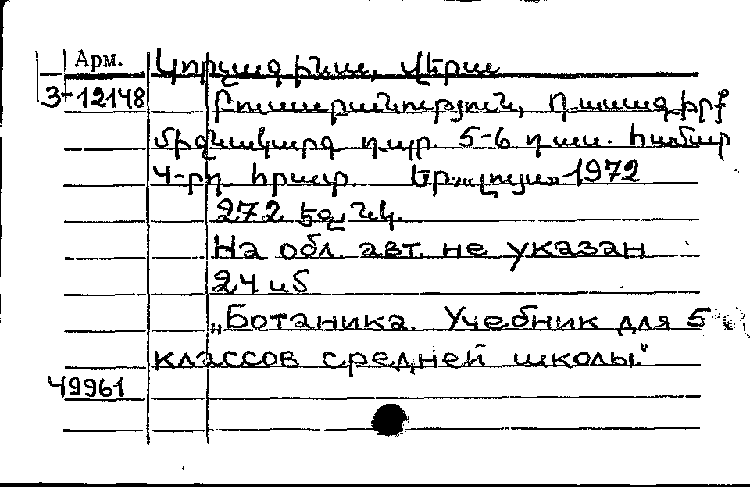 Арм.
Կորչագինա, Վերա
3-12148
Բուսաբանություն, Դասագիրք
միջնակարգ դպր. 5-6 դաս. համար
4-րդ հրատ. Եր. «Լույս» 1972
272 էջ, նկ.
На обл. авт. не указан
24 и5
„Ботаника. Учебник для 5
классов средней школы."
49961